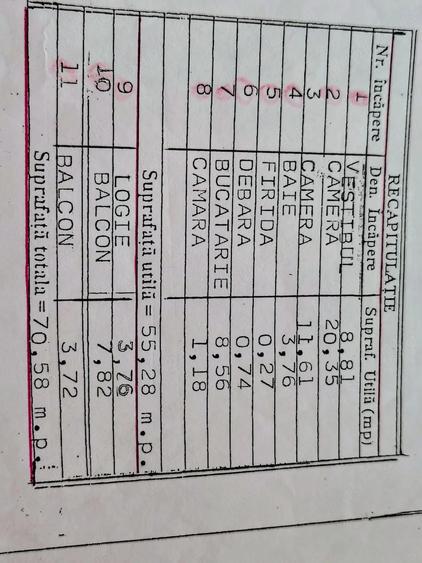 RECAPITULATIE
Nr. încăpere Den. Incăpere Supraf. Utilă (mp)
1 VESTIBUL 8,81
2 CAMERA 20,35
3 CAMERA 11,61
4 BAIE 3,76
5 FIRIDA 0,27
6 DEBARA 0,74
7 BUCATARIE 8,56
8 CAMARA 1,18
Suprafață utilă = 55,28 m.p.
9 LOGIE 3,76
10 BALCON 7,82
11 BALCON 3,72
Suprafață totala = 70,58 m.p.